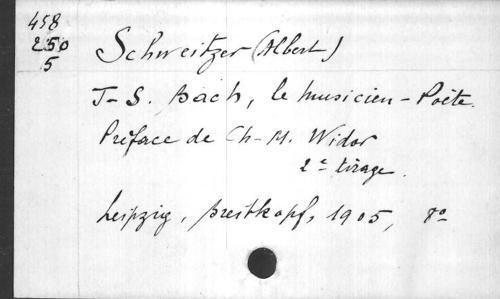 458
250
5
Schweitzer (Albert)
J-S. Bach, le musicien-Poète.
Préface de Ch-M. Widor
2e tirage.
Leipzig, Breitkopf, 1905, 8o